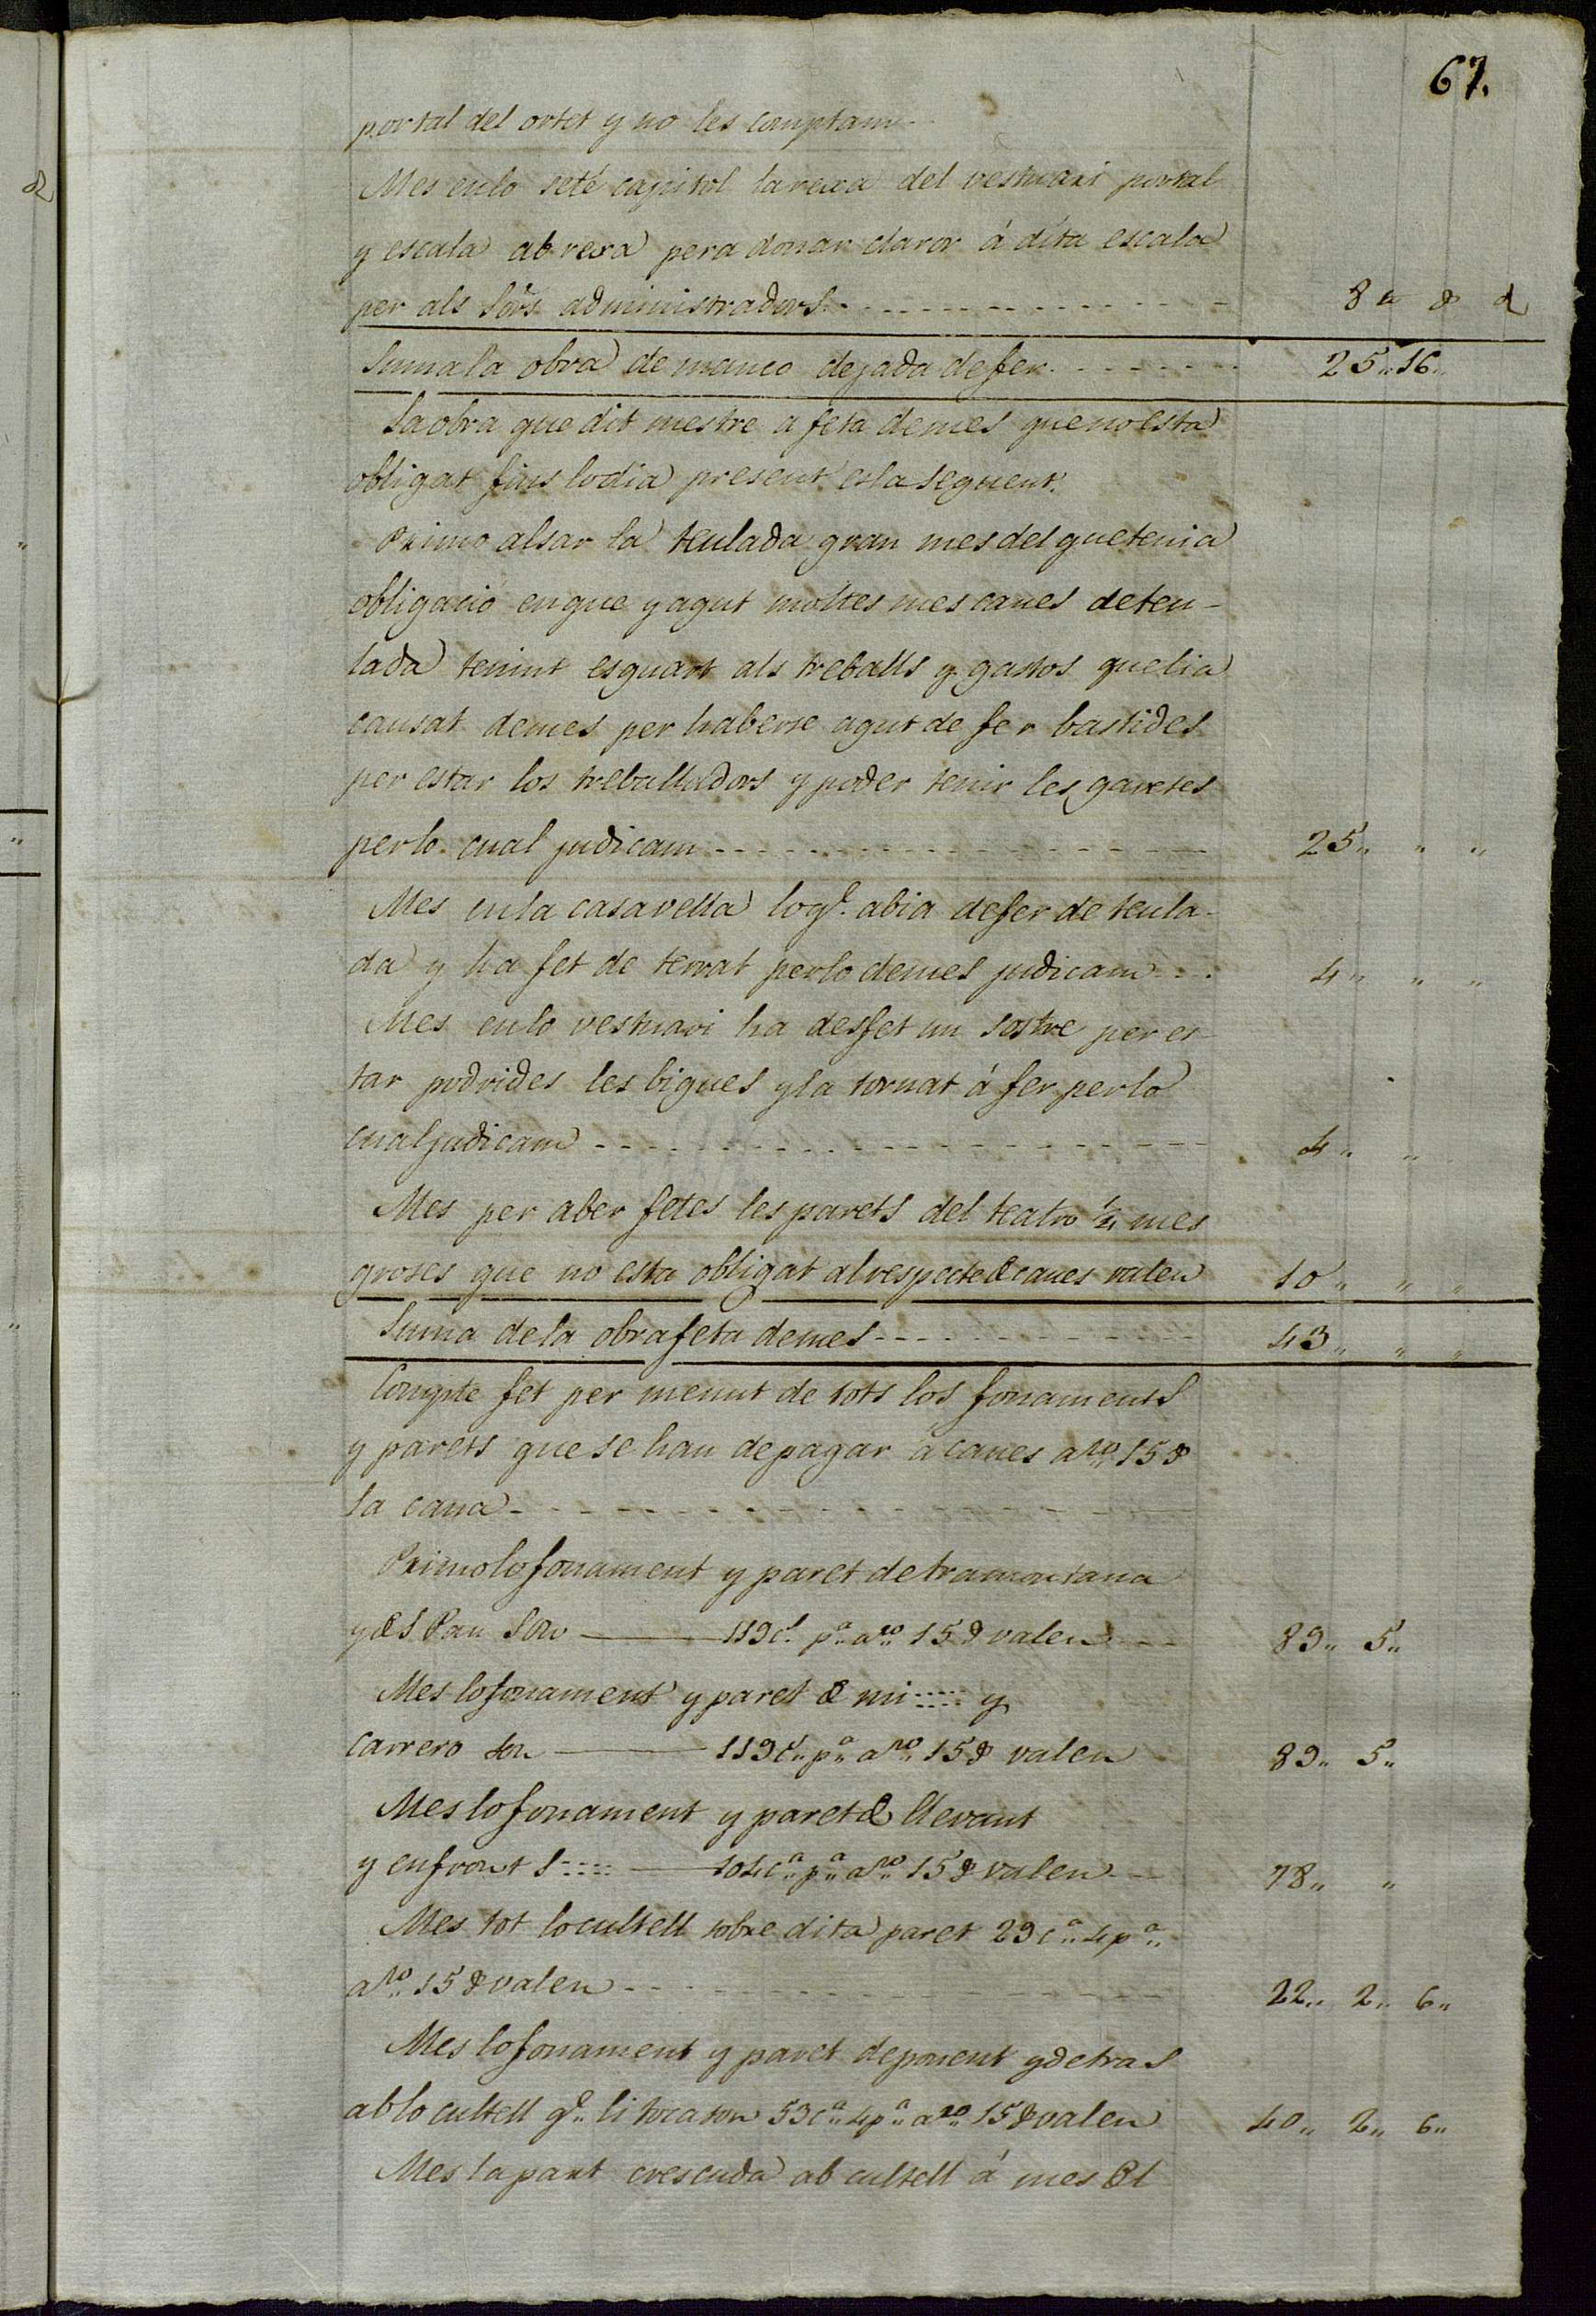 67.
portal del ortet y no les comptam
Mes enlo seté capitol la rexa del vestuari portal
y escala ab rexa pera donar claror á dita escala
per als Sors administradors 8 ₶ ȣ d
Suma la obra de manco dejada de fer 25 „ 16 „
La obra que dit mestre a feta demes que no esta
obligat fins lo dia present es la seguent.
Primo alsar la teulada gran mes del que tenia
obligació en que y agut moltes mes canes de teu-
lada tenint esguart als treballs y gastos que li a
causat demes per haberse agut de fer bastides
per estar los treballadors y poder tenir les gavetes
per lo cual judicam 25 „ „ „
Mes en la casa vella lo qe. abia de fer de teula-
da y ha fet de terrat per lo demes judicam 4 „ „ „
Mes enlo vestuari ha desfet un sostre per es-
tar podrides les bigues y la tornat á fer per lo
cual judicam 4 „ „
Mes per aber fetes les parets del teatro 1/4 mes
groses que no esta obligat al respecte de canes valen 10 „ „ „
Suma de la obra feta demes 43 „ „ „
Compte fet per menut de tots los fonaments
y parets que se han de pagar á canes a ro 15 ȣ
la cana
Primo lo fonament y paret de tramontana
y de S Pau son 119 cs. pa. a ro 15 ȣ valen 89 „ 5 „
Mes lo fonament y paret de mi ::::: y
carrero son 119 cs. pa a ro 15 ȣ valen 89 „ 5 „
Mes lo fonament y paret de llevant
y enfront S :::: 104 ca pa a ro 15 ȣ valen 78 „ „
Mes tot lo cultell sobre dita paret 29 ca 4 pa
a ro 15 ȣ valen 22 „ 2 „ 6 „
Mes lo fonament y paret de ponent y detras
ab lo cultell qe li toca son 53 ca 4 pa a ro 15 ȣ valen 40 „ 2 „ 6 „
Mes la part crescuda ab cultell á mes del